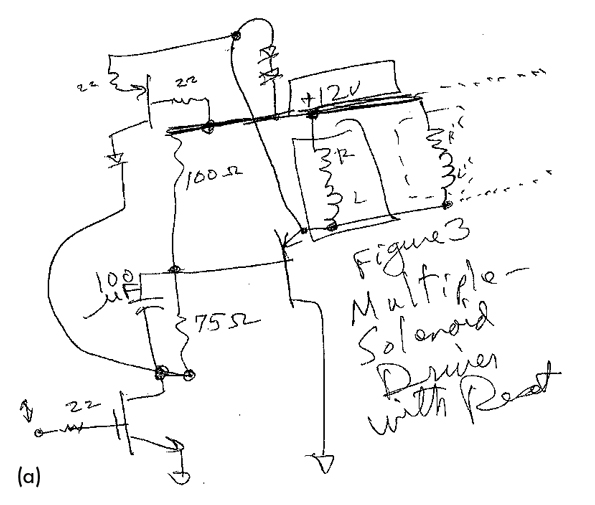 22
22
+12V
100Ω
R
L
R'
L'
100
μF
75Ω
22
Figure 3
Multiple-
Solenoid
Driver
with Reset
(a)